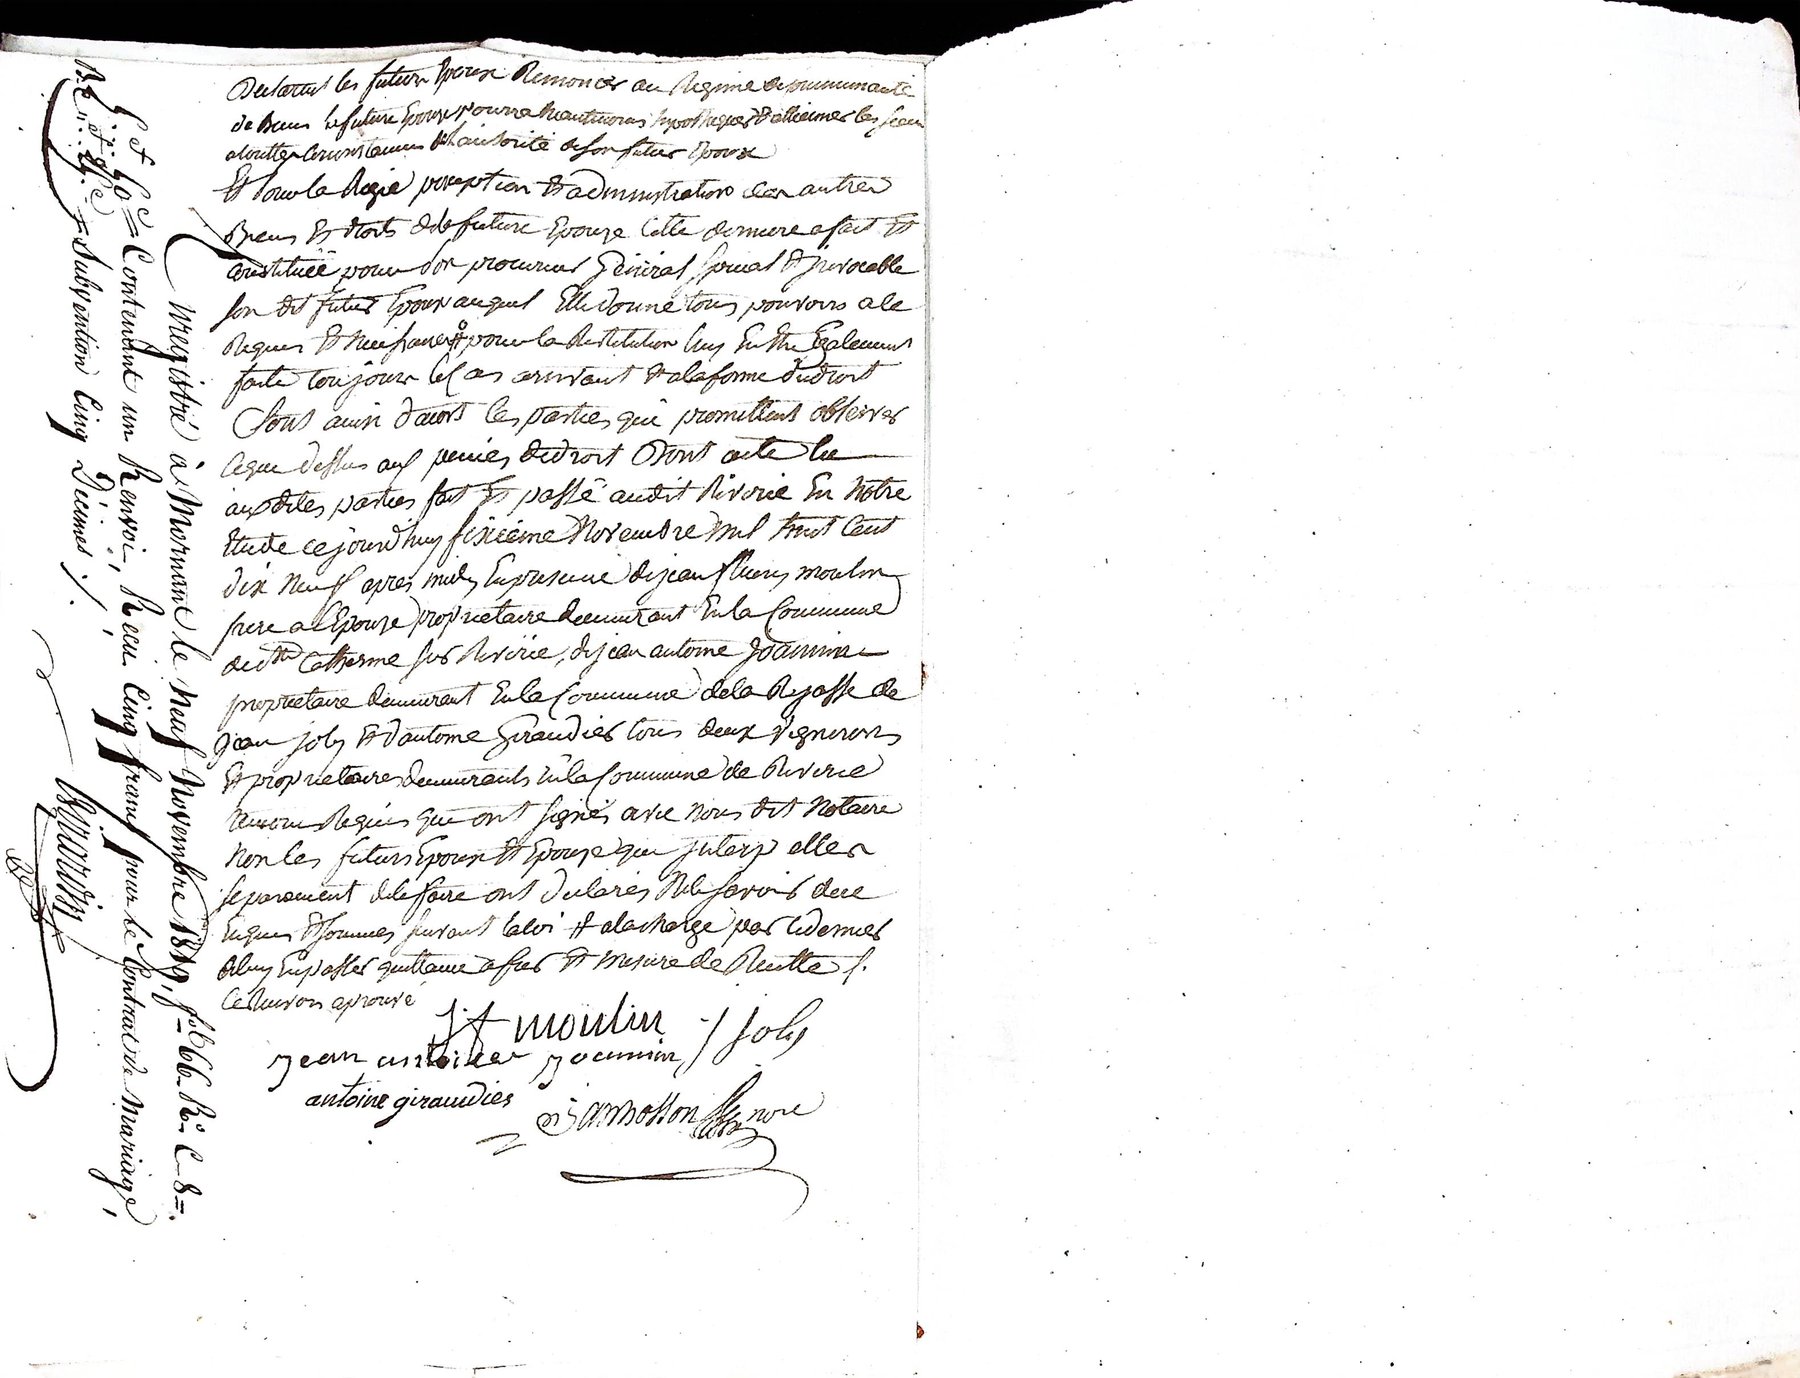 Declarent les futurs Epoux Renoncer au Regime de communauté
de Biens la future Epouze pourra neantmoins hypothequer et alliener les siens
a touttes circonstances de l'autorité de son futur Epoux
Et pour la Regie perception et administration des autres
Biens et droits de la future Epouze cette derniere a fait et
constituée pour son procureur général spécial et irrévocable
son dit futur Epoux auquel Elle donne tous pouvoirs a ce
Requis et necessaires # pour la Restitution luy En être Egalement
faite toujours le cas arrivant et a la forme du droit
Sont ainsi d'acord les parties qui promettent observer
ce que dessus aux peines de droit Dont acte lu
aux dites parties fait et passé audit Riverie En Notre
Etude ce jourd'huy sixieme Novembre mil huit Cent
dix Neuf apres midy En presence de jean moulin
frere a l'Epouze propriétaire demeurant En la Commune
de Ste Catherine sur Riverie, de jean antoine Joannin
propriétaire demeurant En la Commune de la Rajasse de
Jean joly et d'antoine Giraudier tous deux vignerons
Et propriétaires demeurants En la Commune de Riverie
temoins Requis qui ont signés avec nous dit Notaire
Non les futurs Epoux et Epouze qui interp ellés
séparement de le faire ont déclarés ne le savoir de ce
Enquis et sommés suivant la loi # a la charge par ce dernier
de luy En passer quittance a fur et mesure de Recette /.
Ce Renvoi aprouvé
moulin J joly
jean antoine joannin
antoine giraudier
Jamhosson nore
Enregistré à Mornant le Neuf Novembre 1819, fo 66 Ro C 8
Contenant un Renvoi, Recu cinq francs pour le Contrat de Mariage,
Subvention Cinq Décimes ./